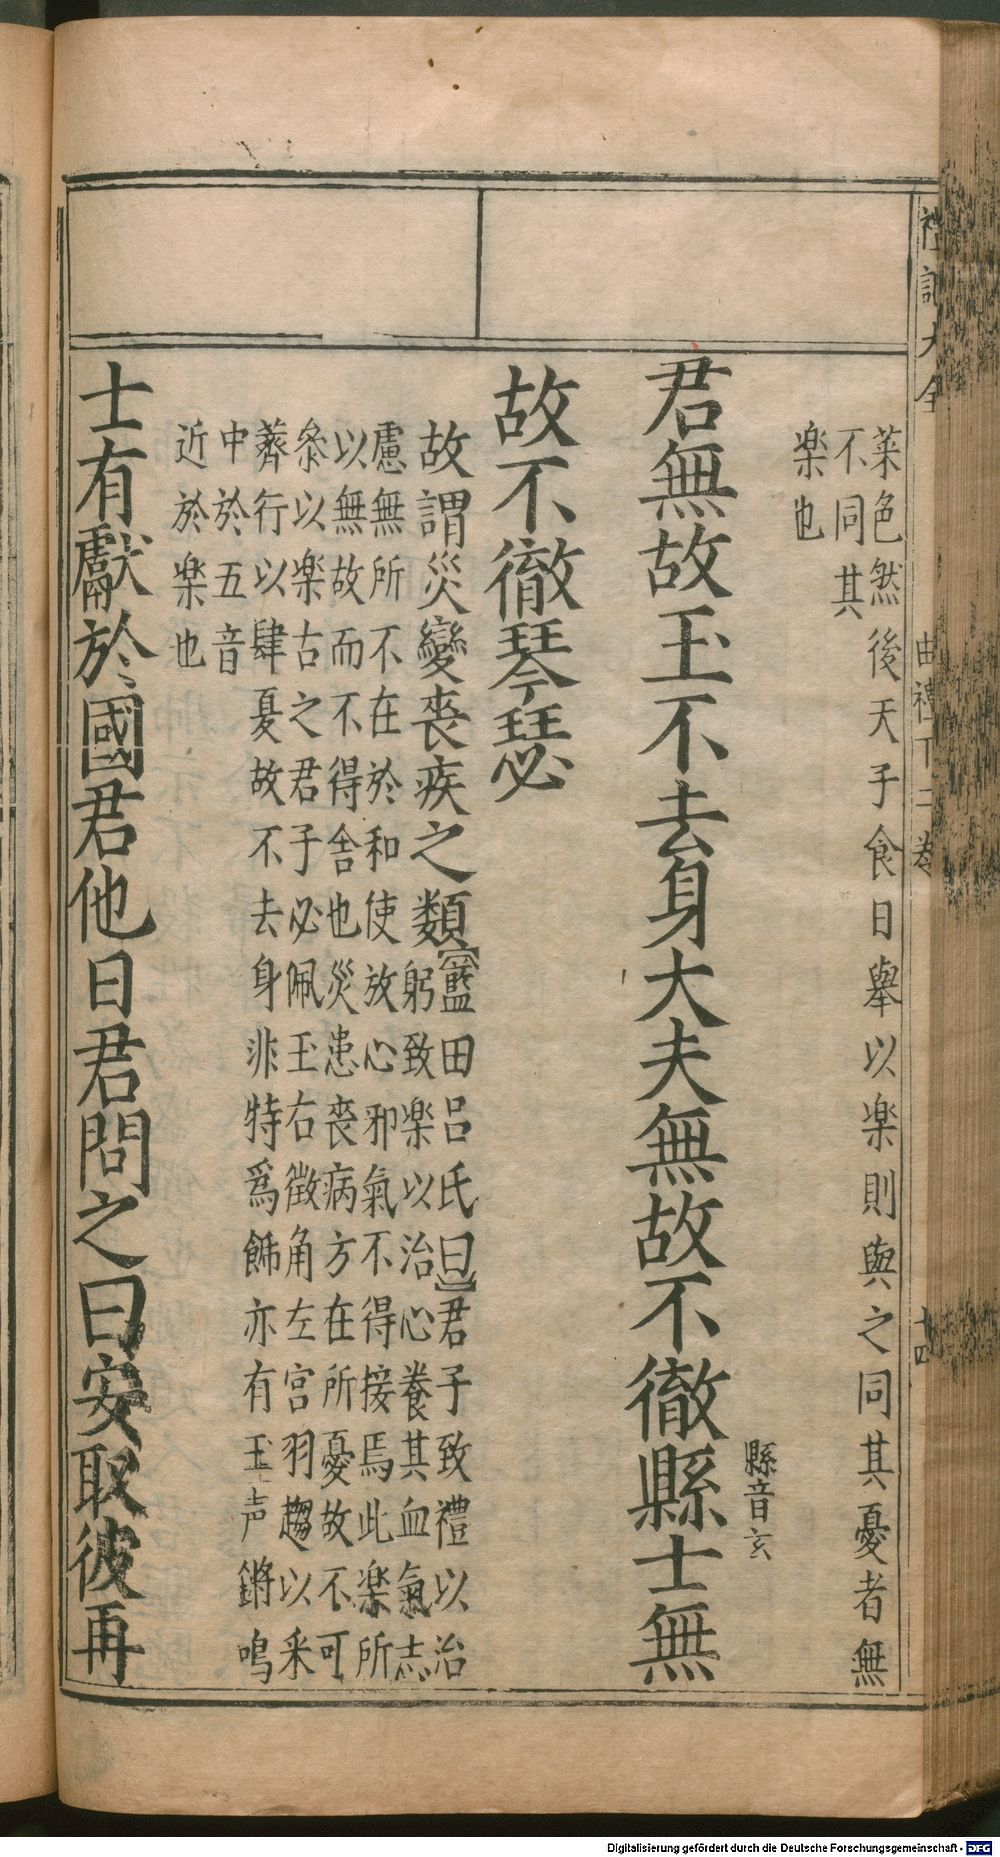 禮記大全 曲禮下二卷 十四
菜色然後天子食日舉以楽則與之同其憂者無
不同其
楽也
縣音玄
君無故玉不去身大夫無故不徹縣士無
故不徹琴瑟
故謂災變喪疾之類【藍田呂氏曰】君子致禮以治
躬致楽以治心養其血氣志
慮無所不在於和使放心邪氣不得接焉此楽所
以無故而不得舍也災患喪病方在所憂故不可
叅以楽古之君子必佩玉右徵角左宮羽趨以采
薺行以肆夏故不去身非特爲飾亦有玉声鏘鳴
中於五音
近於楽也
士有獻於國君他日君問之曰安取彼再
Digitalisierung gefördert durch die Deutsche Forschungsgemeinschaft - DFG